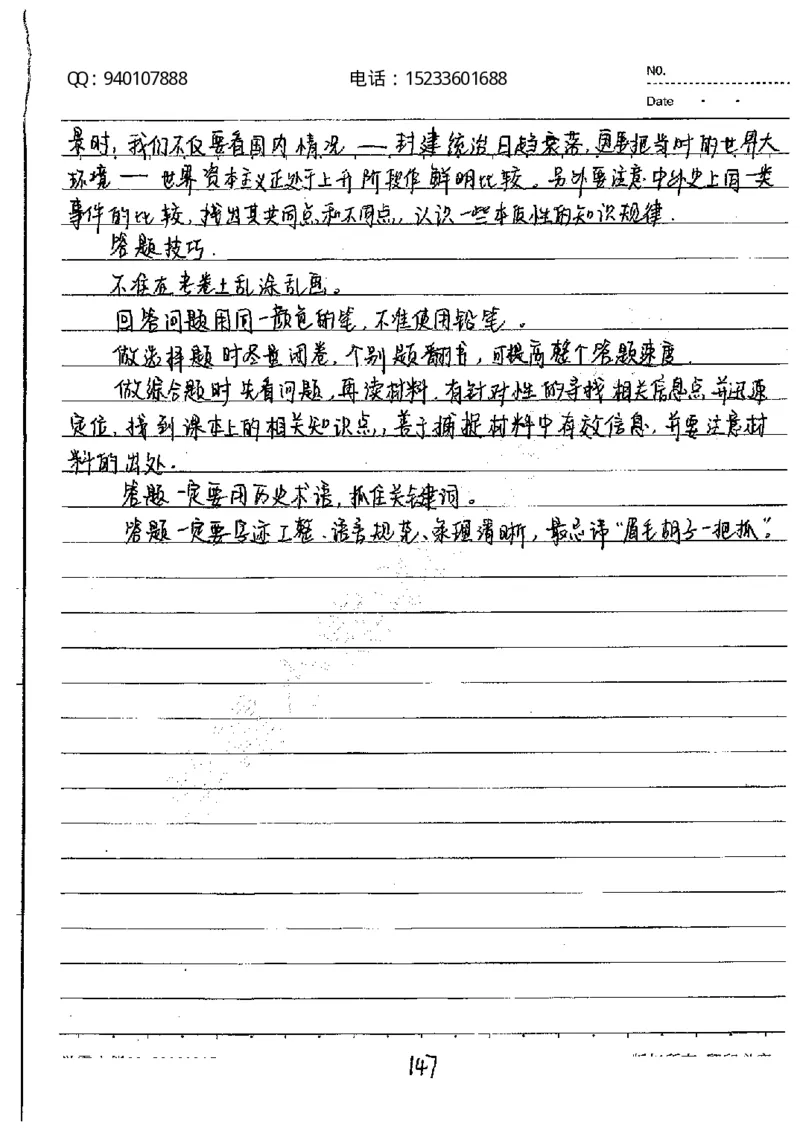 QQ：940107888 电话：15233601688 NO.
Date
景时，我们不仅要看国内情况 — 封建统治日趋衰落，更要把当时的世界大
环境 — 世界资本主义正处于上升阶段作鲜明比较。另外要注意中外史上同一类
事件的比较，找出其共同点和不同点，认识一些本质性的知识规律．
答题技巧．
不准在考卷上乱涂乱画。
回答问题用同一颜色的笔，不准使用铅笔。
做选择题时尽量闭卷，个别题翻书，可提高整个答题速度．
做综合题时先看问题，再读材料．有针对性的寻找相关信息点并迅速
定位，找到课本上的相关知识点，善于捕捉材料中有效信息，并要注意材
料的出处．
答题一定要用历史术语，抓住关键词。
答题一定要字迹工整、语言规范、条理清晰，最忌讳“眉毛胡子一把抓”。
147